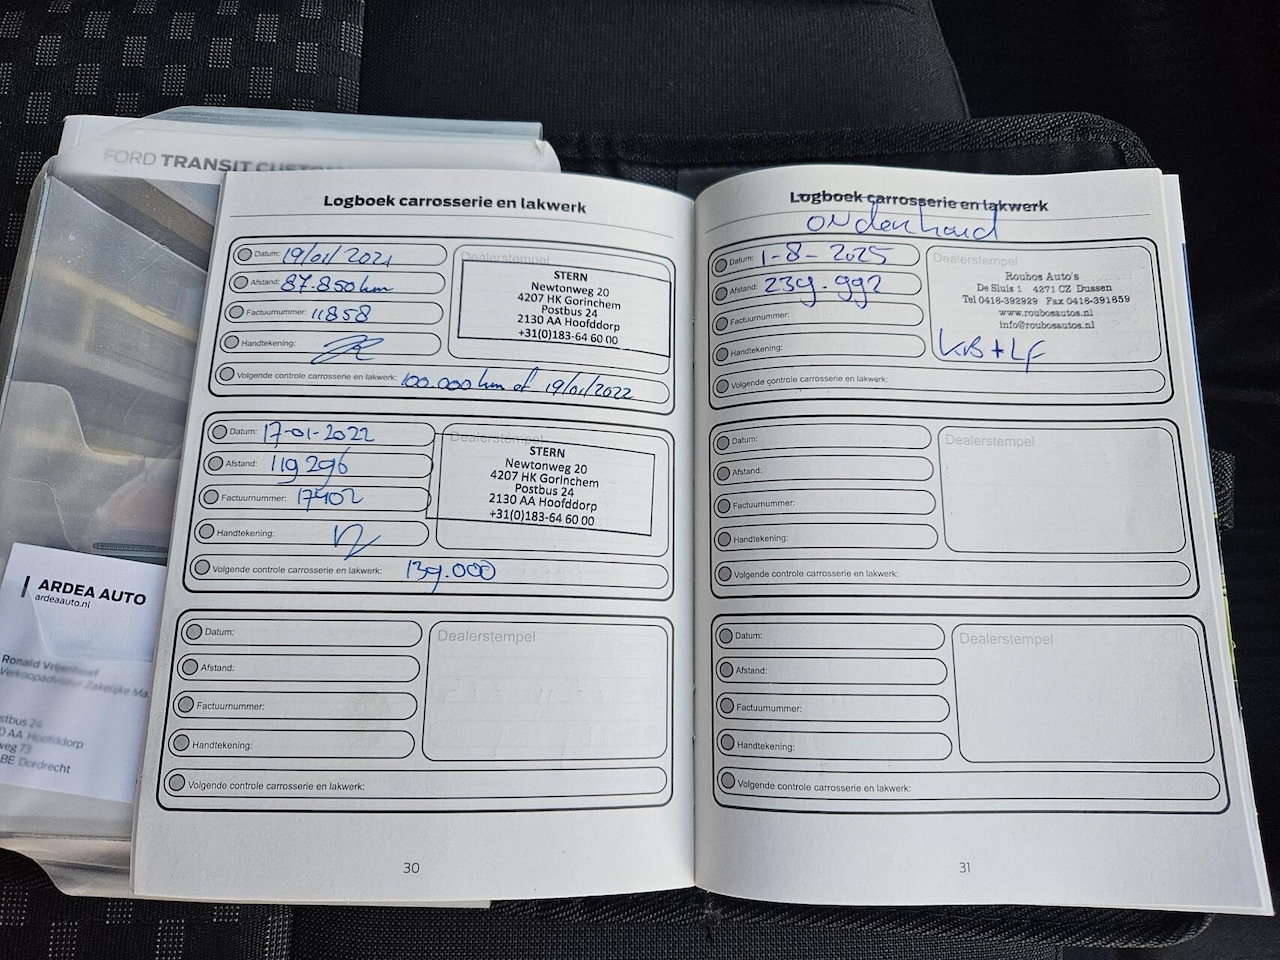 FORD TRANSIT CUSTOM
Logboek carrosserie en lakwerk
Datum: 19/01/2021
Afstand: 87.850 km
Factuurnummer: 11858
Handtekening:
Volgende controle carrosserie en lakwerk: 100.000 km of 19/01/2022
Dealerstempel
STERN
Newtonweg 20
4207 HK Gorinchem
Postbus 24
2130 AA Hoofddorp
+31(0)183-64 60 00
Datum: 17-01-2022
Afstand: 119 296
Factuurnummer: 17402
Handtekening:
Volgende controle carrosserie en lakwerk: 139.000
Dealerstempel
STERN
Newtonweg 20
4207 HK Gorinchem
Postbus 24
2130 AA Hoofddorp
+31(0)183-64 60 00
Datum:
Afstand:
Factuurnummer:
Handtekening:
Volgende controle carrosserie en lakwerk:
Dealerstempel
30
Logboek carrosserie en lakwerk
onderhoud
Datum: 1-8-2025
Afstand: 239.992
Factuurnummer:
Handtekening:
Volgende controle carrosserie en lakwerk:
Dealerstempel
Roubos Auto's
De Sluis 1 4271 CZ Dussen
Tel 0416-392929 Fax 0416-391659
www.roubosautos.nl
info@roubosautos.nl
KB+LF
Datum:
Afstand:
Factuurnummer:
Handtekening:
Volgende controle carrosserie en lakwerk:
Dealerstempel
Datum:
Afstand:
Factuurnummer:
Handtekening:
Volgende controle carrosserie en lakwerk:
Dealerstempel
31
ARDEA AUTO
ardeaauto.nl
Ronald
Verkoopadviseur Zakelijke Ma
stbus 24
0 AA Hoofddorp
weg 73
BE Dordrecht